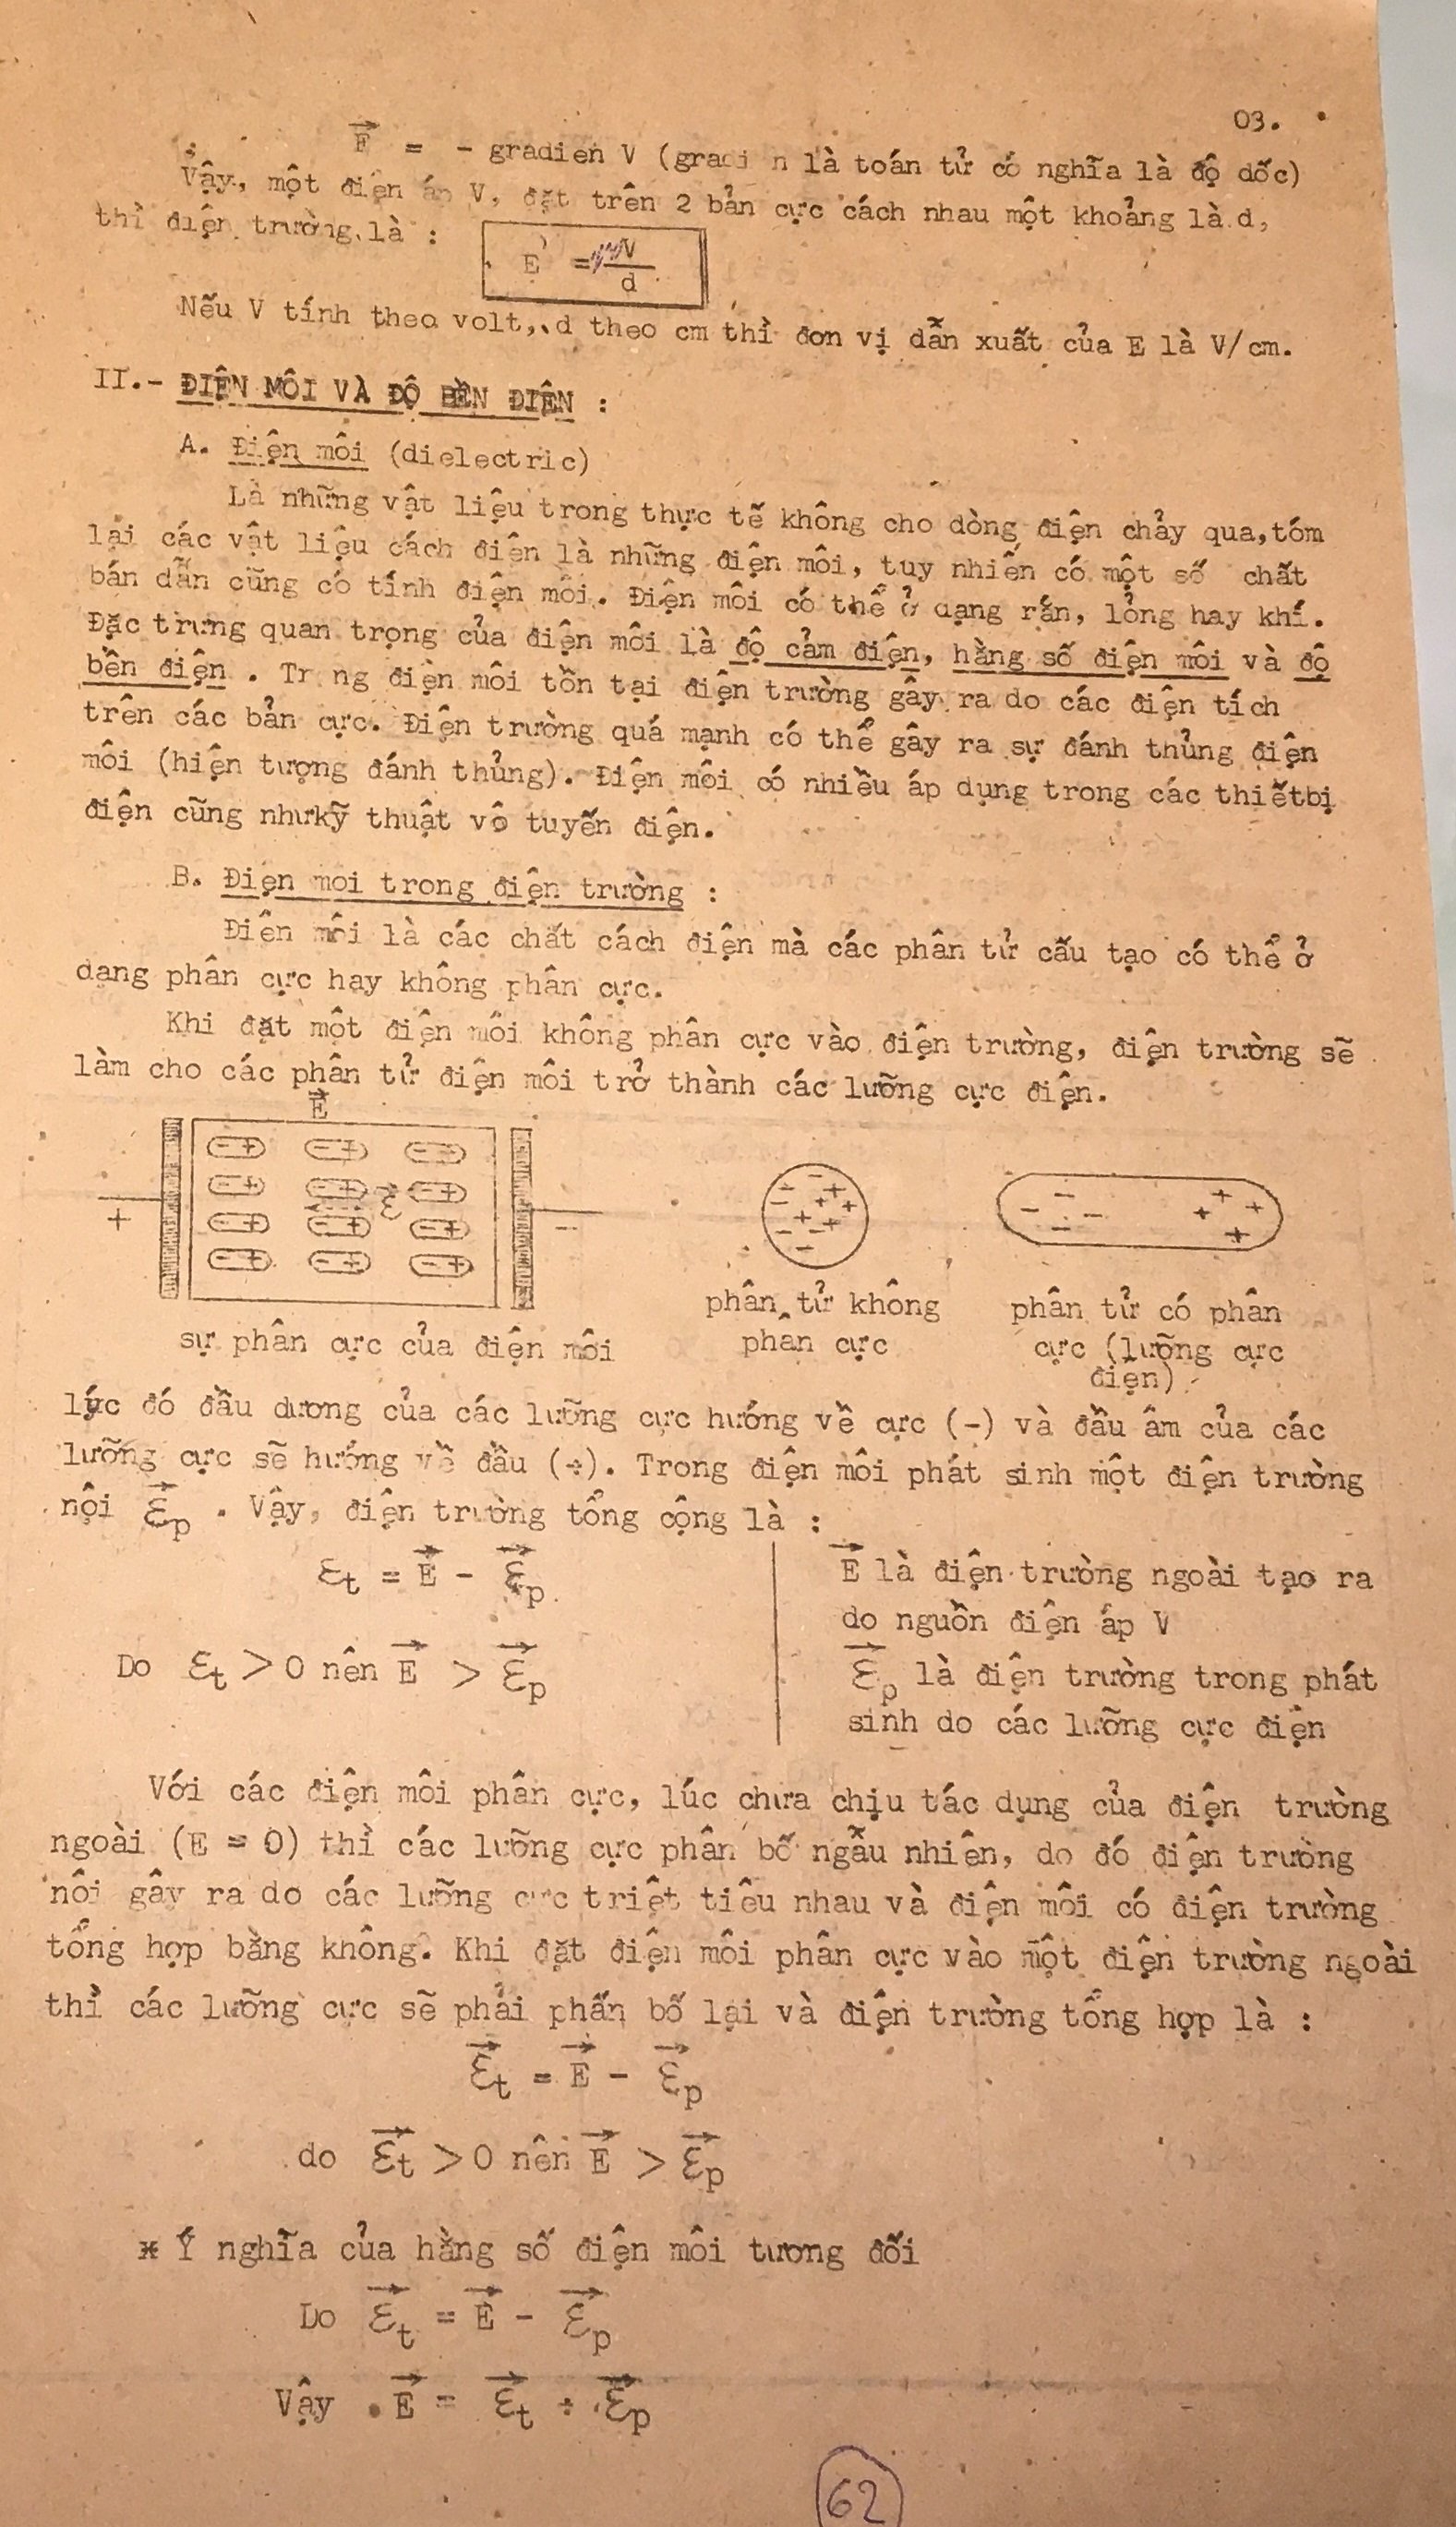 03.
E = - gradien V (gradi n là toán tử có nghĩa là độ dốc)
Vậy, một điện áp V, đặt trên 2 bản cực cách nhau một khoảng là d,
thì điện trường là :
E = V
d
Nếu V tính theo volt, d theo cm thì đơn vị dẫn xuất của E là V/cm.
II.- ĐIỆN MÔI VÀ ĐỘ BỀN ĐIỆN :
A. Điện môi (dielectric)
Là những vật liệu trong thực tế không cho dòng điện chảy qua,tóm
lại các vật liệu cách điện là những điện môi, tuy nhiên có một số chất
bán dẫn cũng có tính điện môi. Điện môi có thể ở dạng rắn, lỏng hay khí.
Đặc trưng quan trọng của điện môi là độ cảm điện, hằng số điện môi và độ
bền điện . Tr ng điện môi tồn tại điện trường gây ra do các điện tích
trên các bản cực. Điện trường quá mạnh có thể gây ra sự đánh thủng điện
môi (hiện tượng đánh thủng). Điện môi có nhiều áp dụng trong các thiếtbị
điện cũng nhưkỹ thuật vô tuyến điện.
B. Điện môi trong điện trường :
Điện môi là các chất cách điện mà các phân tử cấu tạo có thể ở
dạng phân cực hay không phân cực.
Khi đặt một điện môi không phân cực vào điện trường, điện trường sẽ
làm cho các phân tử điện môi trở thành các lưỡng cực điện.
E
- + - + - +
- + - + - +
ε
- + - + - +
- + - + - +
+ -
phân tử không phân tử có phân
sự phân cực của điện môi phân cực cực (lưỡng cực
điện)
lúc đó đầu dương của các lưỡng cực hướng về cực (-) và đầu âm của các
lưỡng cực sẽ hướng về đầu (+). Trong điện môi phát sinh một điện trường
nội εp . Vậy, điện trường tổng cộng là :
εt = E - εp
E là điện trường ngoài tạo ra
do nguồn điện áp V
Do εt > 0 nên E > εp
εp là điện trường trong phát
sinh do các lưỡng cực điện
Với các điện môi phân cực, lúc chưa chịu tác dụng của điện trường
ngoài (E = 0) thì các lưỡng cực phân bố ngẫu nhiên, do đó điện trường
nội gây ra do các lưỡng cực triệt tiêu nhau và điện môi có điện trường
tổng hợp bằng không. Khi đặt điện môi phân cực vào một điện trường ngoài
thì các lưỡng cực sẽ phải phân bố lại và điện trường tổng hợp là :
εt = E - εp
do εt > 0 nên E > εp
* Ý nghĩa của hằng số điện môi tương đối
Do εt = E - εp
Vậy E = εt + εp
62